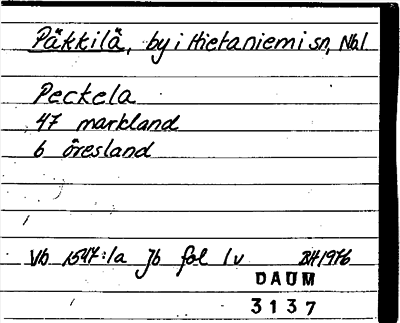 Päkkilä, by i Hietaniemi sn, Nbl
Peckela
47 markland
6 öresland
Vb 1547:1a Jb fol 1v BH 1976
DAUM
3137